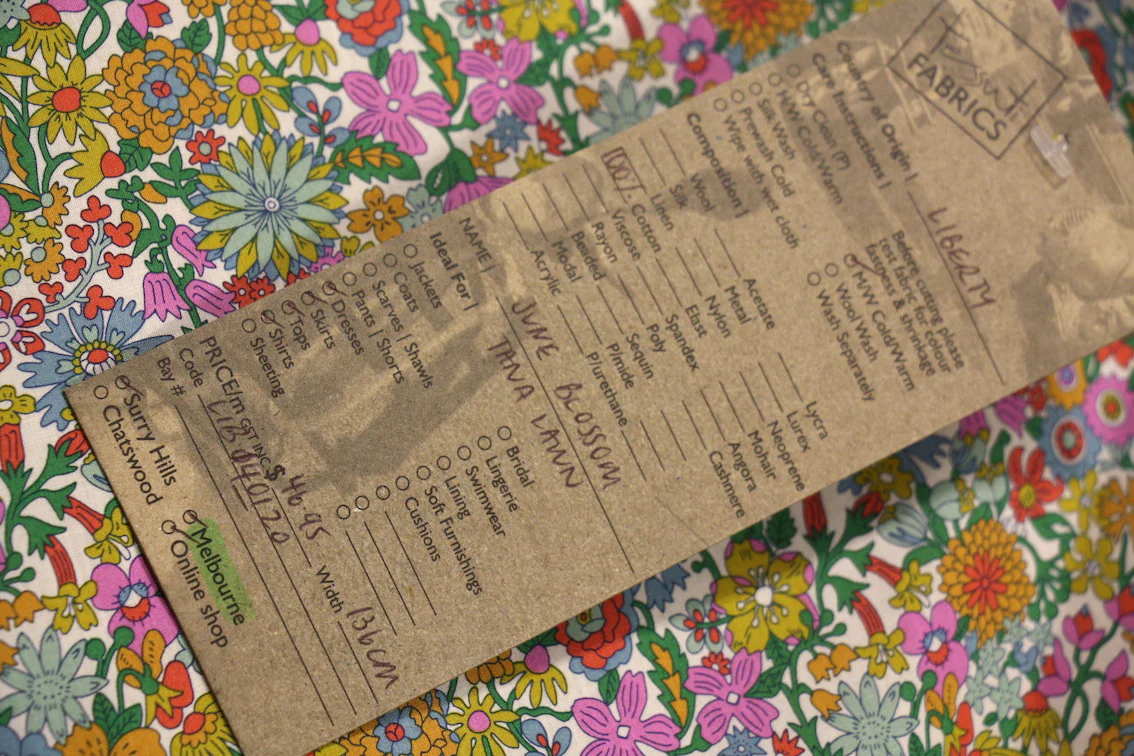 Tessuti
FABRICS
LIBERTY
Country of Origin |
Care Instructions |
Dry Clean (P)
H/W Cold/Warm
Silk Wash
Prewash Cold
Wipe with wet cloth
Before cutting please
test fabric for colour
fastness & shrinkage
M/W Cold/Warm
Wool Wash
Wash Separately
Composition |
Wool
Silk
Linen
100% Cotton
Viscose
Rayon
Beaded
Modal
Acrylic
Acetate
Metal
Nylon
Elast
Spandex
Poly
Sequin
P/mide
P/urethane
Lycra
Lurex
Neoprene
Mohair
Angora
Cashmere
NAME | JUNE BLOSSOM
TANA LAWN
Ideal For |
Jackets
Coats
Scarves | Shawls
Pants | Shorts
Dresses
Skirts
Tops
Shirts
Sheeting
Bridal
Lingerie
Swimwear
Lining
Soft Furnishings
Cushions
PRICE/m GST INC $ 46.95 Width 136cm
Code LIB
Bay #
Surry Hills
Chatswood
Melbourne
Online shop